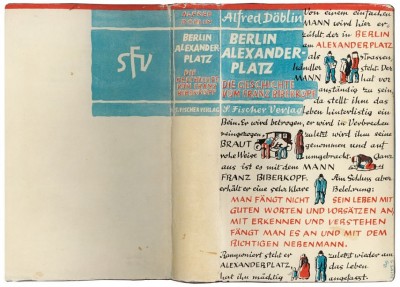 sfv
BERLIN
ALEXANDER
PLATZ
DIE GESCHICHTE
VOM FRANZ
BIBERKOPF
S. FISCHER VERLAG
Alfred Döblin
BERLIN
ALEXANDER-
PLATZ
DIE GESCHICHTE
VOM FRANZ BIBERKOPF
S. Fischer Verlag
Von einem einfachen
MANN wird hier er-
zählt der in BERLIN
am ALEXANDERPLATZ
als Strassen
händler steht. Der
MANN hat vor
anständig zu sein
da stellt ihm das
Leben hinterlistig ein
Bein. Er wird betrogen, er wird in Verbrechen
reingezogen, zuletzt wird ihm seine
BRAUT genommen und auf
rohe Weise umgebracht. Ganz
aus ist es mit dem MANN
FRANZ BIBERKOPF. Am Schluss aber
erhält er eine sehr klare Belehrung:
MAN FÄNGT NICHT SEIN LEBEN MIT
GUTEN WORTEN UND VORSÄTZEN AN,
MIT ERKENNEN UND VERSTEHEN
FÄNGT MAN ES AN UND MIT DEM
RICHTIGEN NEBENMANN.
Ramponiert steht er zuletzt wieder am
ALEXANDERPLATZ, das Leben
hat ihn mächtig angefasst.